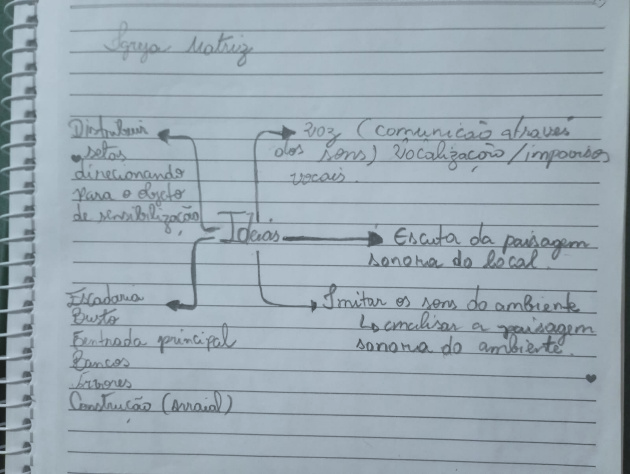 Igreja Matriz
Distribuir
setas
direcionando
para o objeto
de sensibilização
voz (comunicação através
dos sons) Vocalização / improvisos
vocais.
Ideias
Escuta da paisagem
sonora do local.
Escadaria
Busto
Eentrada principal
Bancos
Árvores
Construção (Arraial)
Imitar os sons do ambiente
a paisagem
sonora do ambiente.